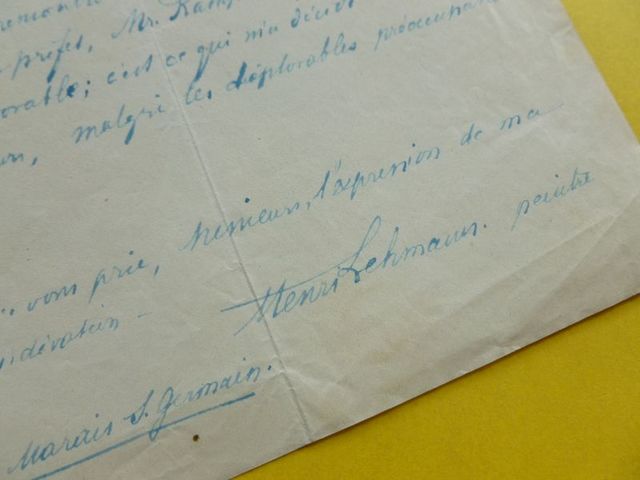 préfet, Mr. Ramp
orable; c'est ce qui m'a décidé
malgré les déplorables préoccupa
vous prie, Messieurs, l'expression de ma
Henri Lehmann. peintre
Marais S. Germain.